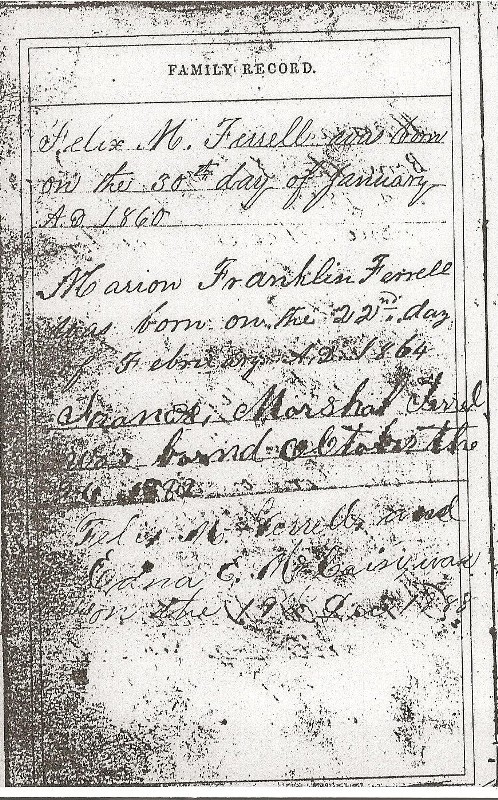 FAMILY RECORD.
Felix M. Ferrell was born
on the 30th day of January
A.D. 1860
Marion Franklin Ferrell
was born on the 22nd. day
of February A.D. 1864
Marshal Ferrel
was bornd the
Felix M. Ferrell and
Edna E. Mc
on the 19